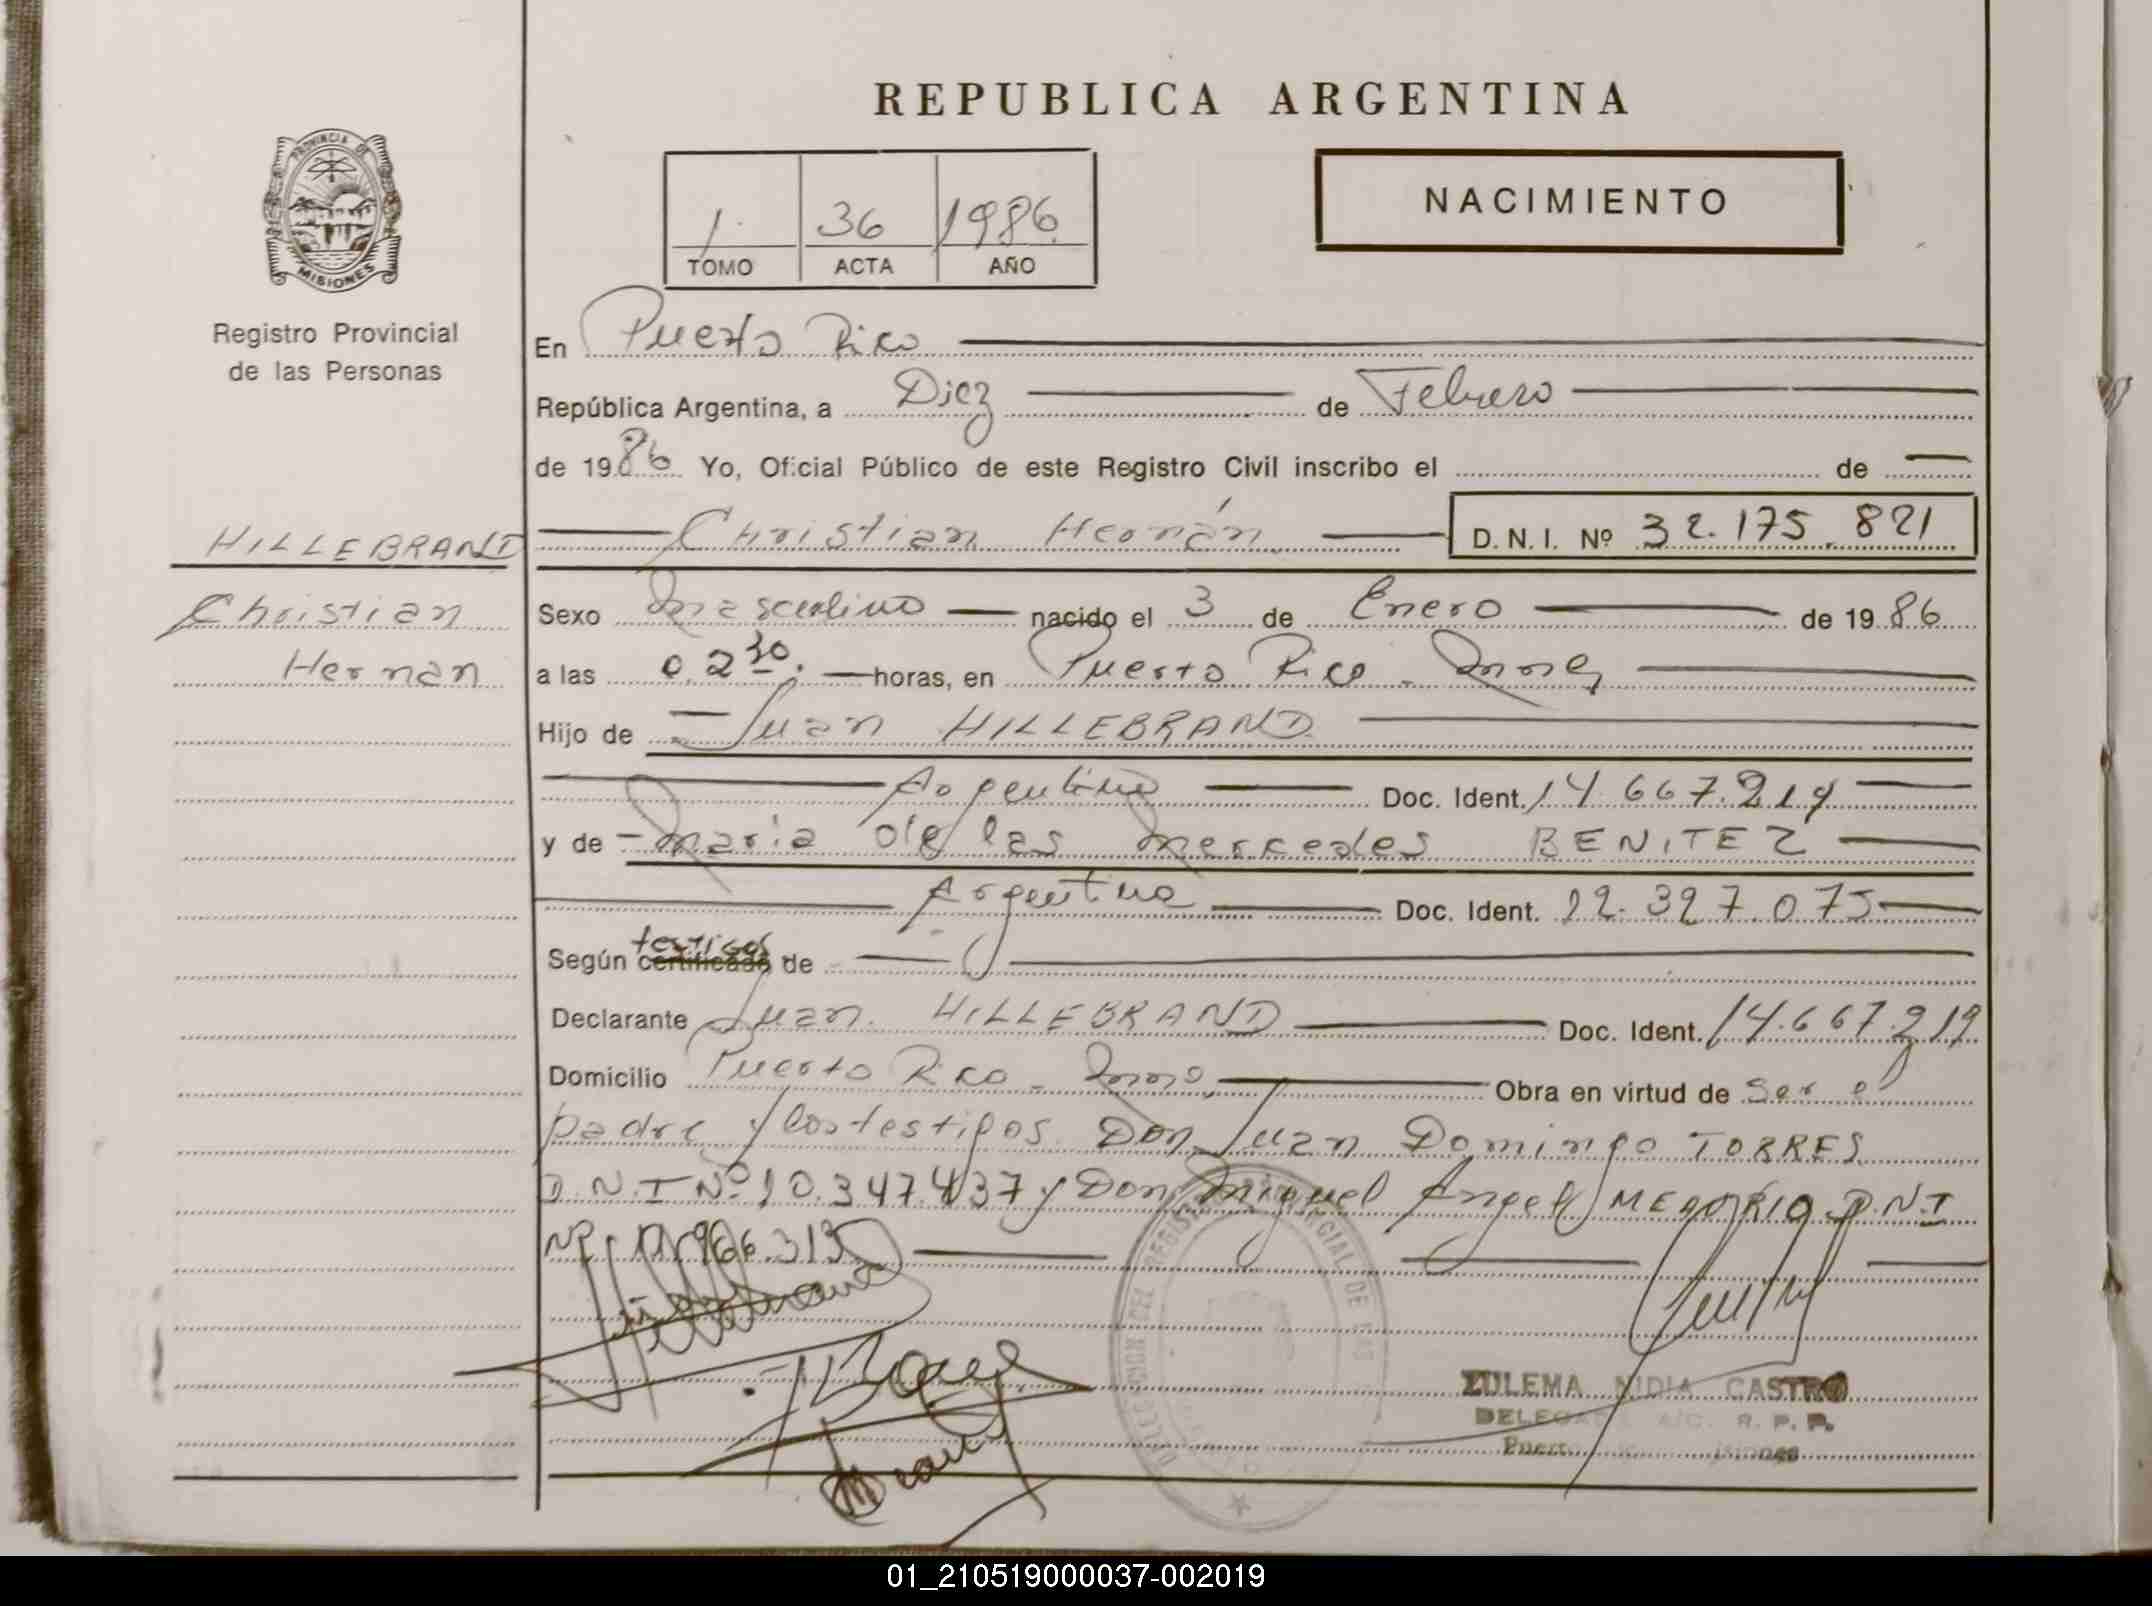 REPUBLICA ARGENTINA
PROVINCIA DE
MISIONES
Registro Provincial
de las Personas
1. 36 1986
TOMO ACTA AÑO
NACIMIENTO
En Puerto Rico
República Argentina, a Diez de Febrero
de 1986 Yo, Oficial Público de este Registro Civil inscribo el de
HILLEBRAND
Christian
Hernan
Christian Hernán D.N.I. Nº 32.175.821
Sexo Masculino nacido el 3 de Enero de 1986
a las 02 30. horas, en Puerto Rico - Mnes
Hijo de Juan HILLEBRAND
Argentino Doc. Ident. 14.667.219
y de Maria de las Mercedes BENITEZ
Argentina Doc. Ident. 12.327.075
Según certificado testigos de
Declarante Juan HILLEBRAND Doc. Ident. 14.667.219
Domicilio Puerto Rico - Obra en virtud de ser el
padre y los testigos Don Juan Domingo TORRES
D.N.I Nº 10.347.437 y Don Miguel Angel D.N.I
Nº
ZULEMA NIDIA CASTRO
DELEGADA A/C. R. P. P.
Puerto
01_210519000037-002019